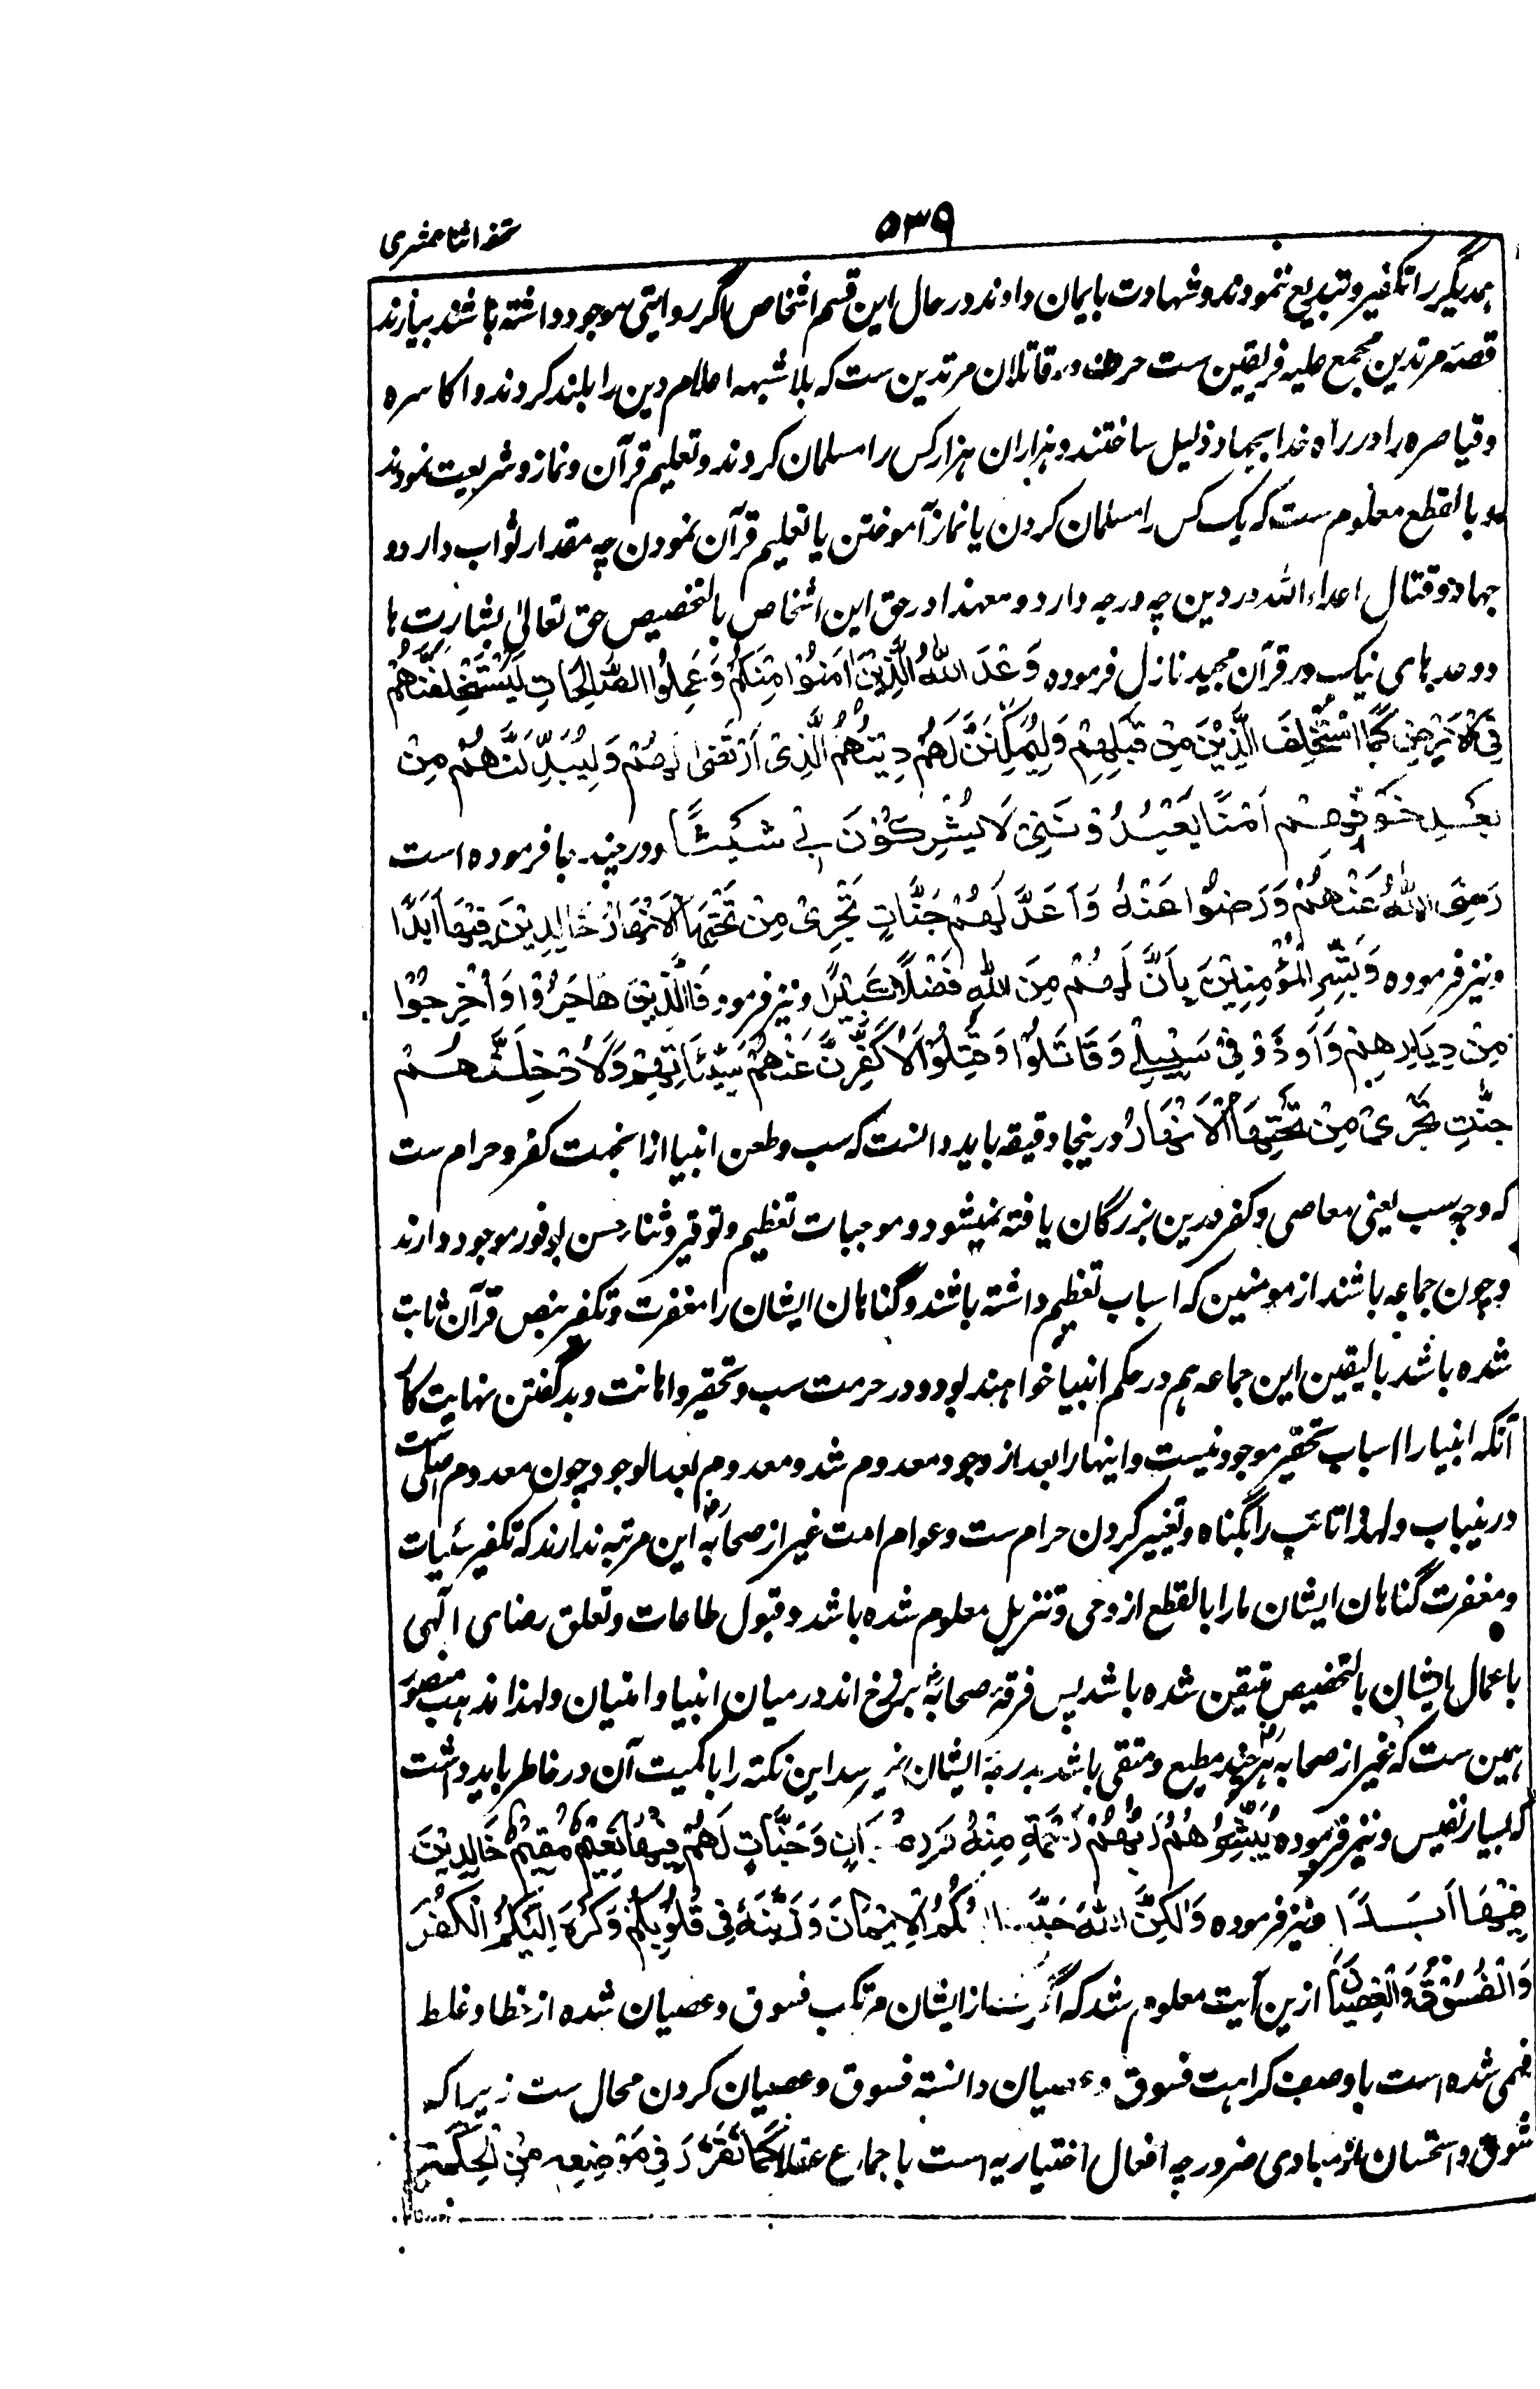 ۵۳۹
تحفہ اثنا عشری
ہمدیگر را تکفیر و تبدیع ننمودند و شہادت بایمان دادند در حال این قسم اشخاص اگر روایتی موجود داشتہ باشند بیارند
قصۂ مرتدین مجمع علیہ فریقین ست حرف در قاتلان مرتدین ست کہ بلا شبہہ اعلام دین را بلند کردند و اکاسرہ
و قیاصرہ را در راہ خدا بجہاد ذلیل ساختند و ہزاران ہزار کس را مسلمان کردند و تعلیم قرآن و نماز و شریعت نمودند
و بالقطع معلوم ست کہ یک کس را مسلمان کردن یا نماز آموختن یا تعلیم قرآن نمودن چہ مقدار ثواب دارد و
جہاد و قتال اعداء اللہ در دین چہ درجہ دارد و معہذا در حق این اشخاص بالتخصیص حق تعالیٰ بشارت ہا
و وعدہای نیک در قرآن مجید نازل فرمودہ وَعَدَ اللهُ الَّذِيْنَ اٰمَنُوْا مِنْكُمْ وَعَمِلُوا الصَّالِحَاتِ لَيَسْتَخْلِفَنَّهُمْ
فِي الْاَرْضِ كَمَا اسْتَخْلَفَ الَّذِيْنَ مِنْ قَبْلِهِمْ وَلَيُمَكِّنَنَّ لَهُمْ دِيْنَهُمُ الَّذِى ارْتَضٰى لَهُمْ وَلَيُبَدِّلَنَّهُمْ مِنْ
بَعْدِ خَوْفِهِمْ اَمْنًا يَعْبُدُوْنَنِيْ لَا يُشْرِكُوْنَ بِيْ شَيْئًا و در چند جا فرمودہ است
رَضِىَ اللهُ عَنْهُمْ وَرَضُوْا عَنْهُ وَاَعَدَّ لَهُمْ جَنَّاتٍ تَجْرِىْ مِنْ تَحْتِهَا الْاَنْهَارُ خَالِدِيْنَ فِيْهَا اَبَدًا
و نیز فرمودہ وَبَشِّرِ الْمُؤْمِنِيْنَ بِاَنَّ لَهُمْ مِنَ اللهِ فَضْلًا كَبِيْرًا و نیز فرمود فَالَّذِيْنَ هَاجَرُوْا وَاُخْرِجُوْا
مِنْ دِيَارِهِمْ وَاُوذُوْا فِيْ سَبِيْلِيْ وَقَاتَلُوْا وَقُتِلُوْا لَاُكَفِّرَنَّ عَنْهُمْ سَيِّئَاتِهِمْ وَلَاُدْخِلَنَّهُمْ
جَنّٰتٍ تَجْرِىْ مِنْ تَحْتِهَا الْاَنْهَارُ درینجا دقیقہ باید دانست کہ سب و طعن انبیا ازانجہت کفر و حرام ست
کہ وجہ سب یعنی معاصی و کفر درین بزرگان یافتہ نمیشود و موجبات تعظیم و توقیر و ثنای حسن بوفور موجود دارند
و چون جماعہ باشند از مومنین کہ اسباب تعظیم داشتہ باشند و گناہان ایشان را مغفرت و تکفیر بنص قرآن ثابت
شدہ باشد بالیقین این جماعہ ہم در حکم انبیا خواہند بود در حرمت سب و تحقیر و اہانت و بد گفتن نہایت کار
آنکہ انبیا را اسباب تحقیر موجود نیست و اینہا را بعد از وجود معدوم شد و معدوم بعد الوجود چون معدوم اصلی ست
درینباب و لہذا تائب را بگناہ و تعییر کردن حرام ست و عوام امت غیر از صحابہؓ این مرتبہ ندارند کہ تکفیر سئیات
و مغفرت گناہان ایشان ما را بالقطع از وحی و تنزیل معلوم شدہ باشد و قبول طاعات و تعلق رضای الٰہی
باعمال ایشان بالتخصیص متیقن شدہ باشد پس فرقۂ صحابہؓ برزخ اند درمیان انبیا و امتیان و لہذا مذہب منصور
ہمین ست کہ غیر از صحابہؓ ہر چند مطیع و متقی باشد بدرجہ ایشان نمیرسد این نکتہ را با کمیت آن در خاطر باید داشت
کہ بسیار نفیس و نیز فرمودہ يُبَشِّرُهُمْ رَبُّهُمْ بِرَحْمَةٍ مِنْهُ وَرِضْوَانٍ وَجَنَّاتٍ لَهُمْ فِيْهَا نَعِيْمٌ مُقِيْمٌ خَالِدِيْنَ
فِيْهَا اَبَدًا و نیز فرمودہ وَلٰكِنَّ اللهَ حَبَّبَ اِلَيْكُمُ الْاِيْمَانَ وَزَيَّنَهُ فِيْ قُلُوْبِكُمْ وَكَرَّهَ اِلَيْكُمُ الْكُفْرَ
وَالْفُسُوْقَ وَالْعِصْيَانَ ازین آیت معلوم شد کہ اگر کسے از ایشان مرتکب فسوق و عصیان شدہ از خطا و غلط
فہمی شدہ است با وصف کراہت فسوق و عصیان دانستہ فسوق و عصیان کردن محال ست زیرا کہ
شوق و استحسان از مبادی ضروریہ افعال اختیاریہ است باجماع عقلا كَمَا تَقَرَّرَ فِيْ مَوْضِعِهٖ مِنَ الْحِكْمَةِ